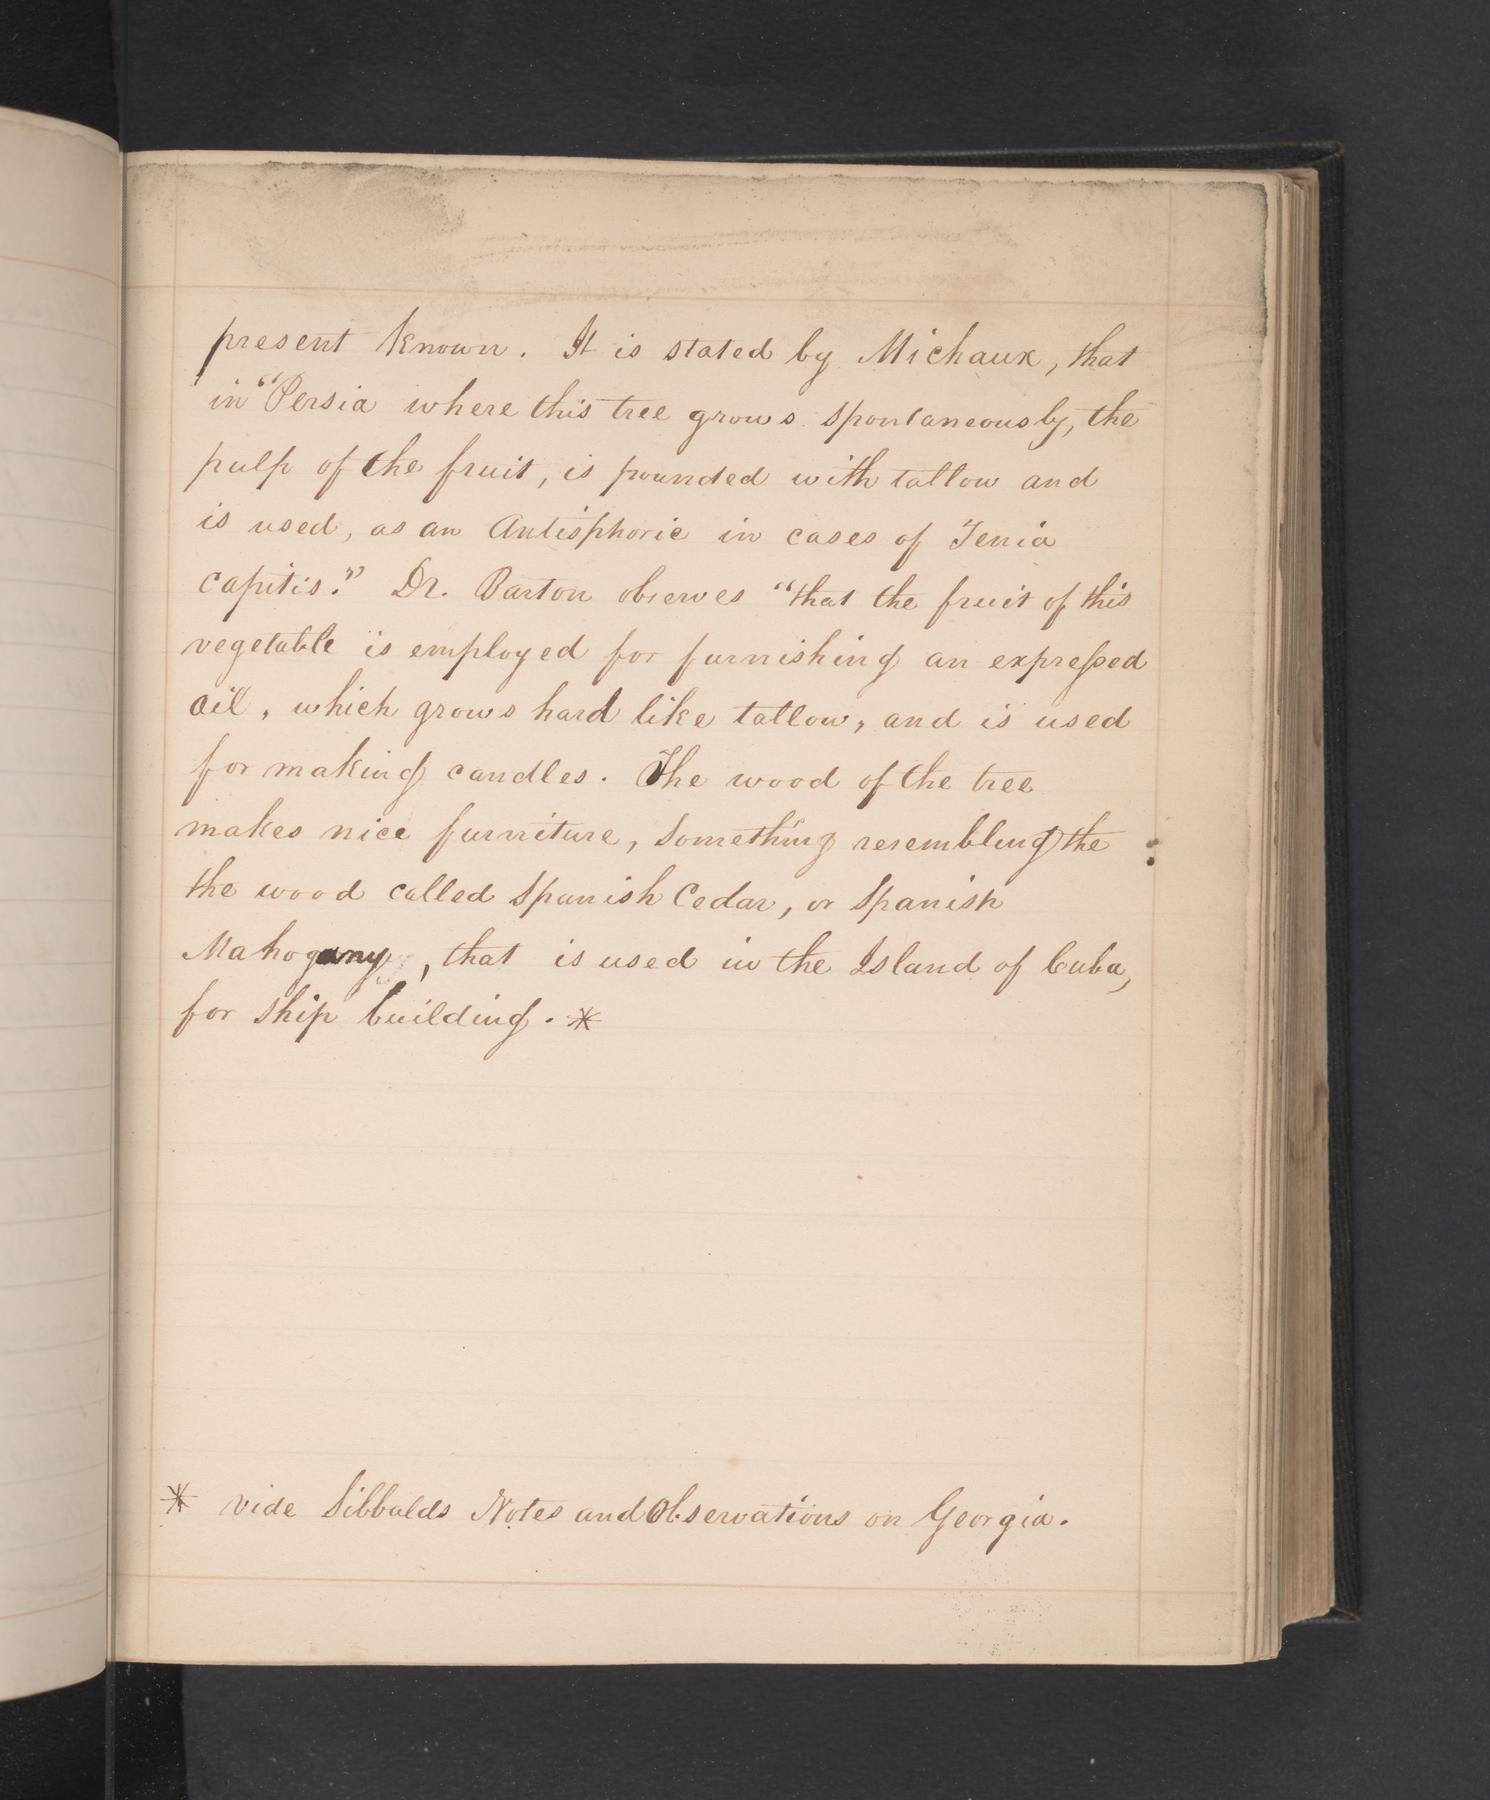 present known. It is stated by Michaux, that
in "Persia where this tree grows spontaneously, the
pulp of the fruit, is pounded with tallow and
is used, as an Antisphoric in cases of Tenia
capitis." Dr. Barton observes "that the fruit of this
vegetable is employed for furnishing an expressed
oil, which grows hard like tallow, and is used
for making candles. The wood of the tree
makes nice furniture, something resembling the
the wood called Spanish Cedar, or Spanish
Mahogany, that is used in the Island of Cuba,
for ship building. *
* vide Sibbalds Notes and Observations on Georgia.